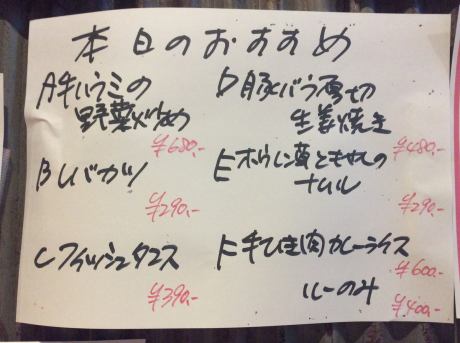 本日のおすすめ
A牛ハラミの
野菜炒め
¥680.-
Bレバカツ
¥290.-
Cフィッシュタコス
¥390.-
D豚バラ厚切
生姜焼き
¥480.-
Eホウレン草ともやしの
ナムル
¥290.-
F牛ひき肉カレーライス
¥600.-
ルーのみ
¥400.-